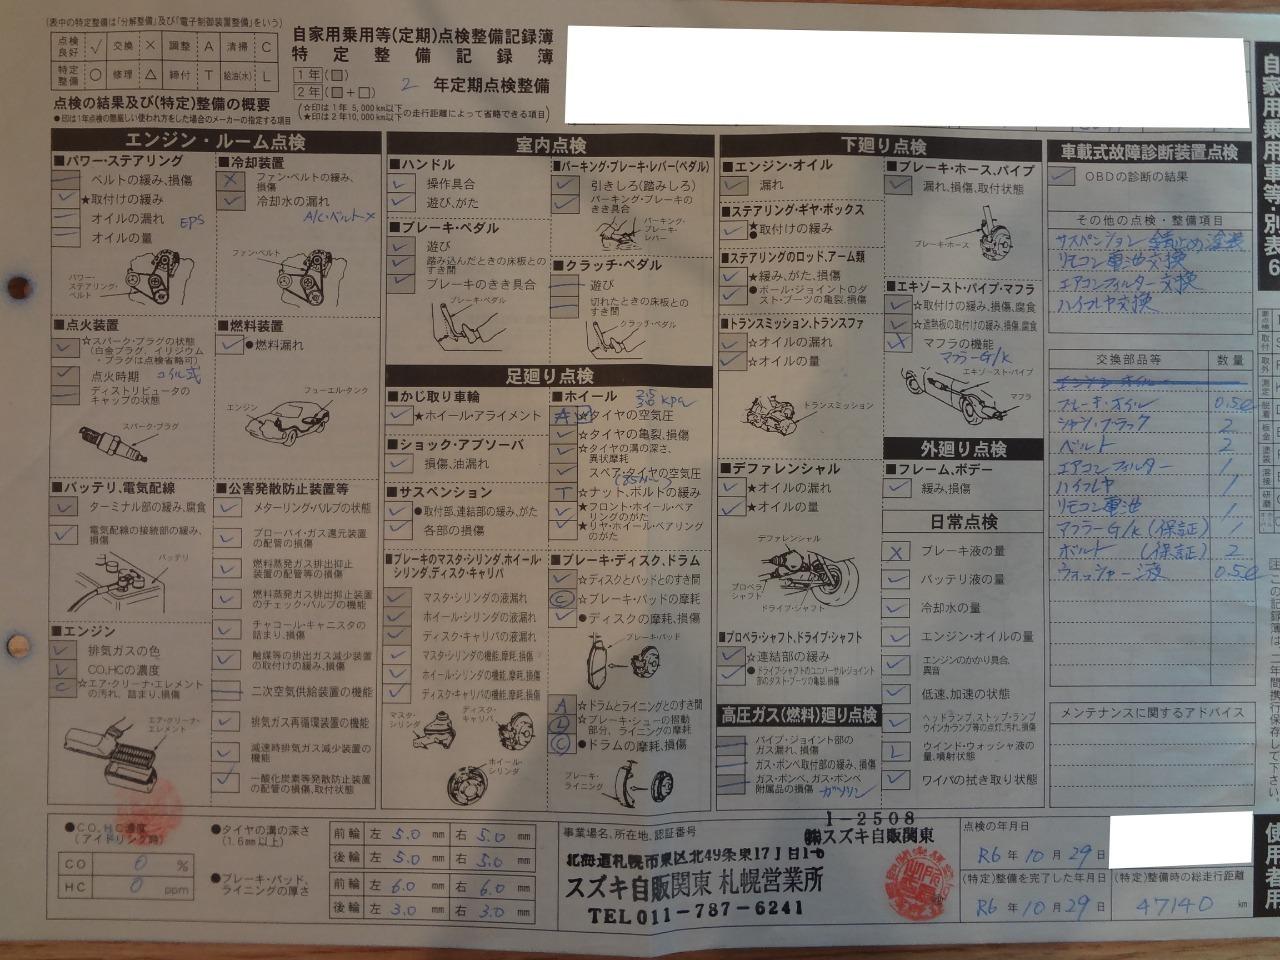 (表中の特定整備は「分解整備」及び「電子制御装置整備」をいう)
点検良好 ✓ 交換 × 調整 A 清掃 C
特定整備 ○ 修理 △ 締付 T 給油(水) L
点検の結果及び(特定)整備の概要
●印は1年点検の間厳しい使われ方をした場合のメーカーの指定する項目
自家用乗用等(定期)点検整備記録簿
特定整備記録簿
1年(□)
2年(□+□)
2 年定期点検整備
(☆印は1年 5,000km以下
★印は2年10,000km以下の走行距離によって省略できる項目)
エンジン・ルーム点検
■パワー・ステアリング
ベルトの緩み、損傷
★取付けの緩み
オイルの漏れ EPS
オイルの量
パワー・ステアリング・ベルト
■冷却装置
× ファン・ベルトの緩み、損傷
✓ 冷却水の漏れ
A/C・ベルト×
ファン・ベルト
■点火装置
☆スパーク・プラグの状態
(白金プラグ、イリジウム・プラグは点検省略可)
点火時期 コイル式
ディストリビュータのキャップの状態
スパーク・プラグ
■燃料装置
●燃料漏れ
フューエル・タンク
エンジン
■バッテリ、電気配線
ターミナル部の緩み、腐食
電気配線の接続部の緩み、損傷
バッテリ
■エンジン
排気ガスの色
CO、HCの濃度
C ☆エア・クリーナ・エレメントの汚れ、詰まり、損傷
エア・クリーナ・エレメント
■公害発散防止装置等
メターリング・バルブの状態
ブローバイ・ガス還元装置の配管の損傷
燃料蒸発ガス排出抑止装置の配管等の損傷
燃料蒸発ガス排出抑止装置のチェック・バルブの機能
チャコール・キャニスタの詰まり、損傷
触媒等の排出ガス減少装置の取付けの緩み、損傷
二次空気供給装置の機能
排気ガス再循環装置の機能
減速時排気ガス減少装置の機能
一酸化炭素等発散防止装置の配管の損傷、取付状態
室内点検
■ハンドル
操作具合
遊び、がた
■ブレーキ・ペダル
遊び
踏み込んだときの床板とのすき間
ブレーキのきき具合
ブレーキ・ペダル
■パーキング・ブレーキ・レバー(ペダル)
引きしろ(踏みしろ)
パーキング・ブレーキのきき具合
パーキング・ブレーキ・レバー
■クラッチ・ペダル
遊び
切れたときの床板とのすき間
クラッチ・ペダル
足廻り点検
■かじ取り車輪
★ホイール・アライメント
■ショック・アブソーバ
損傷、油漏れ
■サスペンション
●取付部、連結部の緩み、がた
各部の損傷
■ブレーキのマスタ・シリンダ、ホイール・シリンダ、ディスク・キャリパ
マスタ・シリンダの液漏れ
ホイール・シリンダの液漏れ
ディスク・キャリパの液漏れ
マスタ・シリンダの機能、摩耗、損傷
ホイール・シリンダの機能、摩耗、損傷
ディスク・キャリパの機能、摩耗、損傷
マスタ・シリンダ
ディスク・キャリパ
ホイール・シリンダ
■ホイール
A ☆タイヤの空気圧
☆タイヤの亀裂、損傷
☆タイヤの溝の深さ、異状摩耗
スペア・タイヤの空気圧
T ☆ナット、ボルトの緩み
★フロント・ホイール・ベアリングのがた
★リヤ・ホイール・ベアリングのがた
■ブレーキ・ディスク、ドラム
☆ディスクとパッドとのすき間
C ☆ブレーキ・パッドの摩耗
●ディスクの摩耗、損傷
ブレーキ・パッド
A ☆ドラムとライニングとのすき間
☆ブレーキ・シューの摺動部分、ライニングの摩耗
C ●ドラムの摩耗、損傷
ブレーキ・ライニング
下廻り点検
■エンジン・オイル
漏れ
■ステアリング・ギヤ・ボックス
★取付けの緩み
■ステアリングのロッド、アーム類
★緩み、がた、損傷
●ボール・ジョイントのダスト・ブーツの亀裂、損傷
■トランスミッション、トランスファ
☆オイルの漏れ
☆オイルの量
トランスミッション
■デファレンシャル
★オイルの漏れ
★オイルの量
デファレンシャル
プロペラ・シャフト
ドライブ・シャフト
■プロペラ・シャフト、ドライブ・シャフト
☆連結部の緩み
●ドライブ・シャフトのユニバーサル・ジョイント部のダスト・ブーツの亀裂、損傷
高圧ガス(燃料)廻り点検
パイプ・ジョイント部のガス漏れ、損傷
ガス・ボンベ取付部の緩み、損傷
ガス・ボンベ、ガス・ボンベ附属品の損傷 ガソリン
■ブレーキ・ホース、パイプ
漏れ、損傷、取付状態
ブレーキ・ホース
■エキゾースト・パイプ、マフラ
☆取付けの緩み、損傷、腐食
☆遮熱板の取付けの緩み、損傷、腐食
マフラの機能
マフラーG/k
エキゾースト・パイプ
マフラ
外廻り点検
■フレーム、ボデー
緩み、損傷
日常点検
× ブレーキ液の量
バッテリ液の量
冷却水の量
エンジン・オイルの量
エンジンのかかり具合、異音
低速、加速の状態
ヘッドランプ、ストップ・ランプ、ウインカランプ等の点灯、汚れ、損傷
L ウインド・ウォッシャ液の量、噴射状態
ワイパの拭き取り状態
車載式故障診断装置点検
OBDの診断の結果
その他の点検・整備項目
サスペンション 錆止め塗装
リモコン電池交換
エアコンフィルター交換
ハイフレヤ交換
交換部品等 数量
ブレーキ・オイル 0.5ℓ
ベルト 2
エアコンフィルター 1
ハイフレヤ 1
リモコン電池 1
マフラG/k(保証) 1
ボルト (保証) 2
ウォッシャー液 0.5ℓ
メンテナンスに関するアドバイス
自家用乗用車等・別表6
注 この記録簿は、二年間携行保存して下さい
使用者用
●CO、HC濃度(アイドリング時)
CO 0 %
HC 0 ppm
●タイヤの溝の深さ(1.6mm以上)
前輪 左 5.0 mm 右 5.0 mm
後輪 左 5.0 mm 右 5.0 mm
●ブレーキ・パッド、ライニングの厚さ
前輪 左 6.0 mm 右 6.0 mm
後輪 左 3.0 mm 右 3.0 mm
事業場名、所在地、認証番号
1-2508
㈱スズキ自販関東
北海道札幌市東区北49条東17丁目1-6
スズキ自販関東 札幌営業所
TEL 011-787-6241
点検の年月日
R6 年 10 月 29 日
(特定)整備を完了した年月日
R6 年 10 月 29 日
(特定)整備時の総走行距離
47140 km